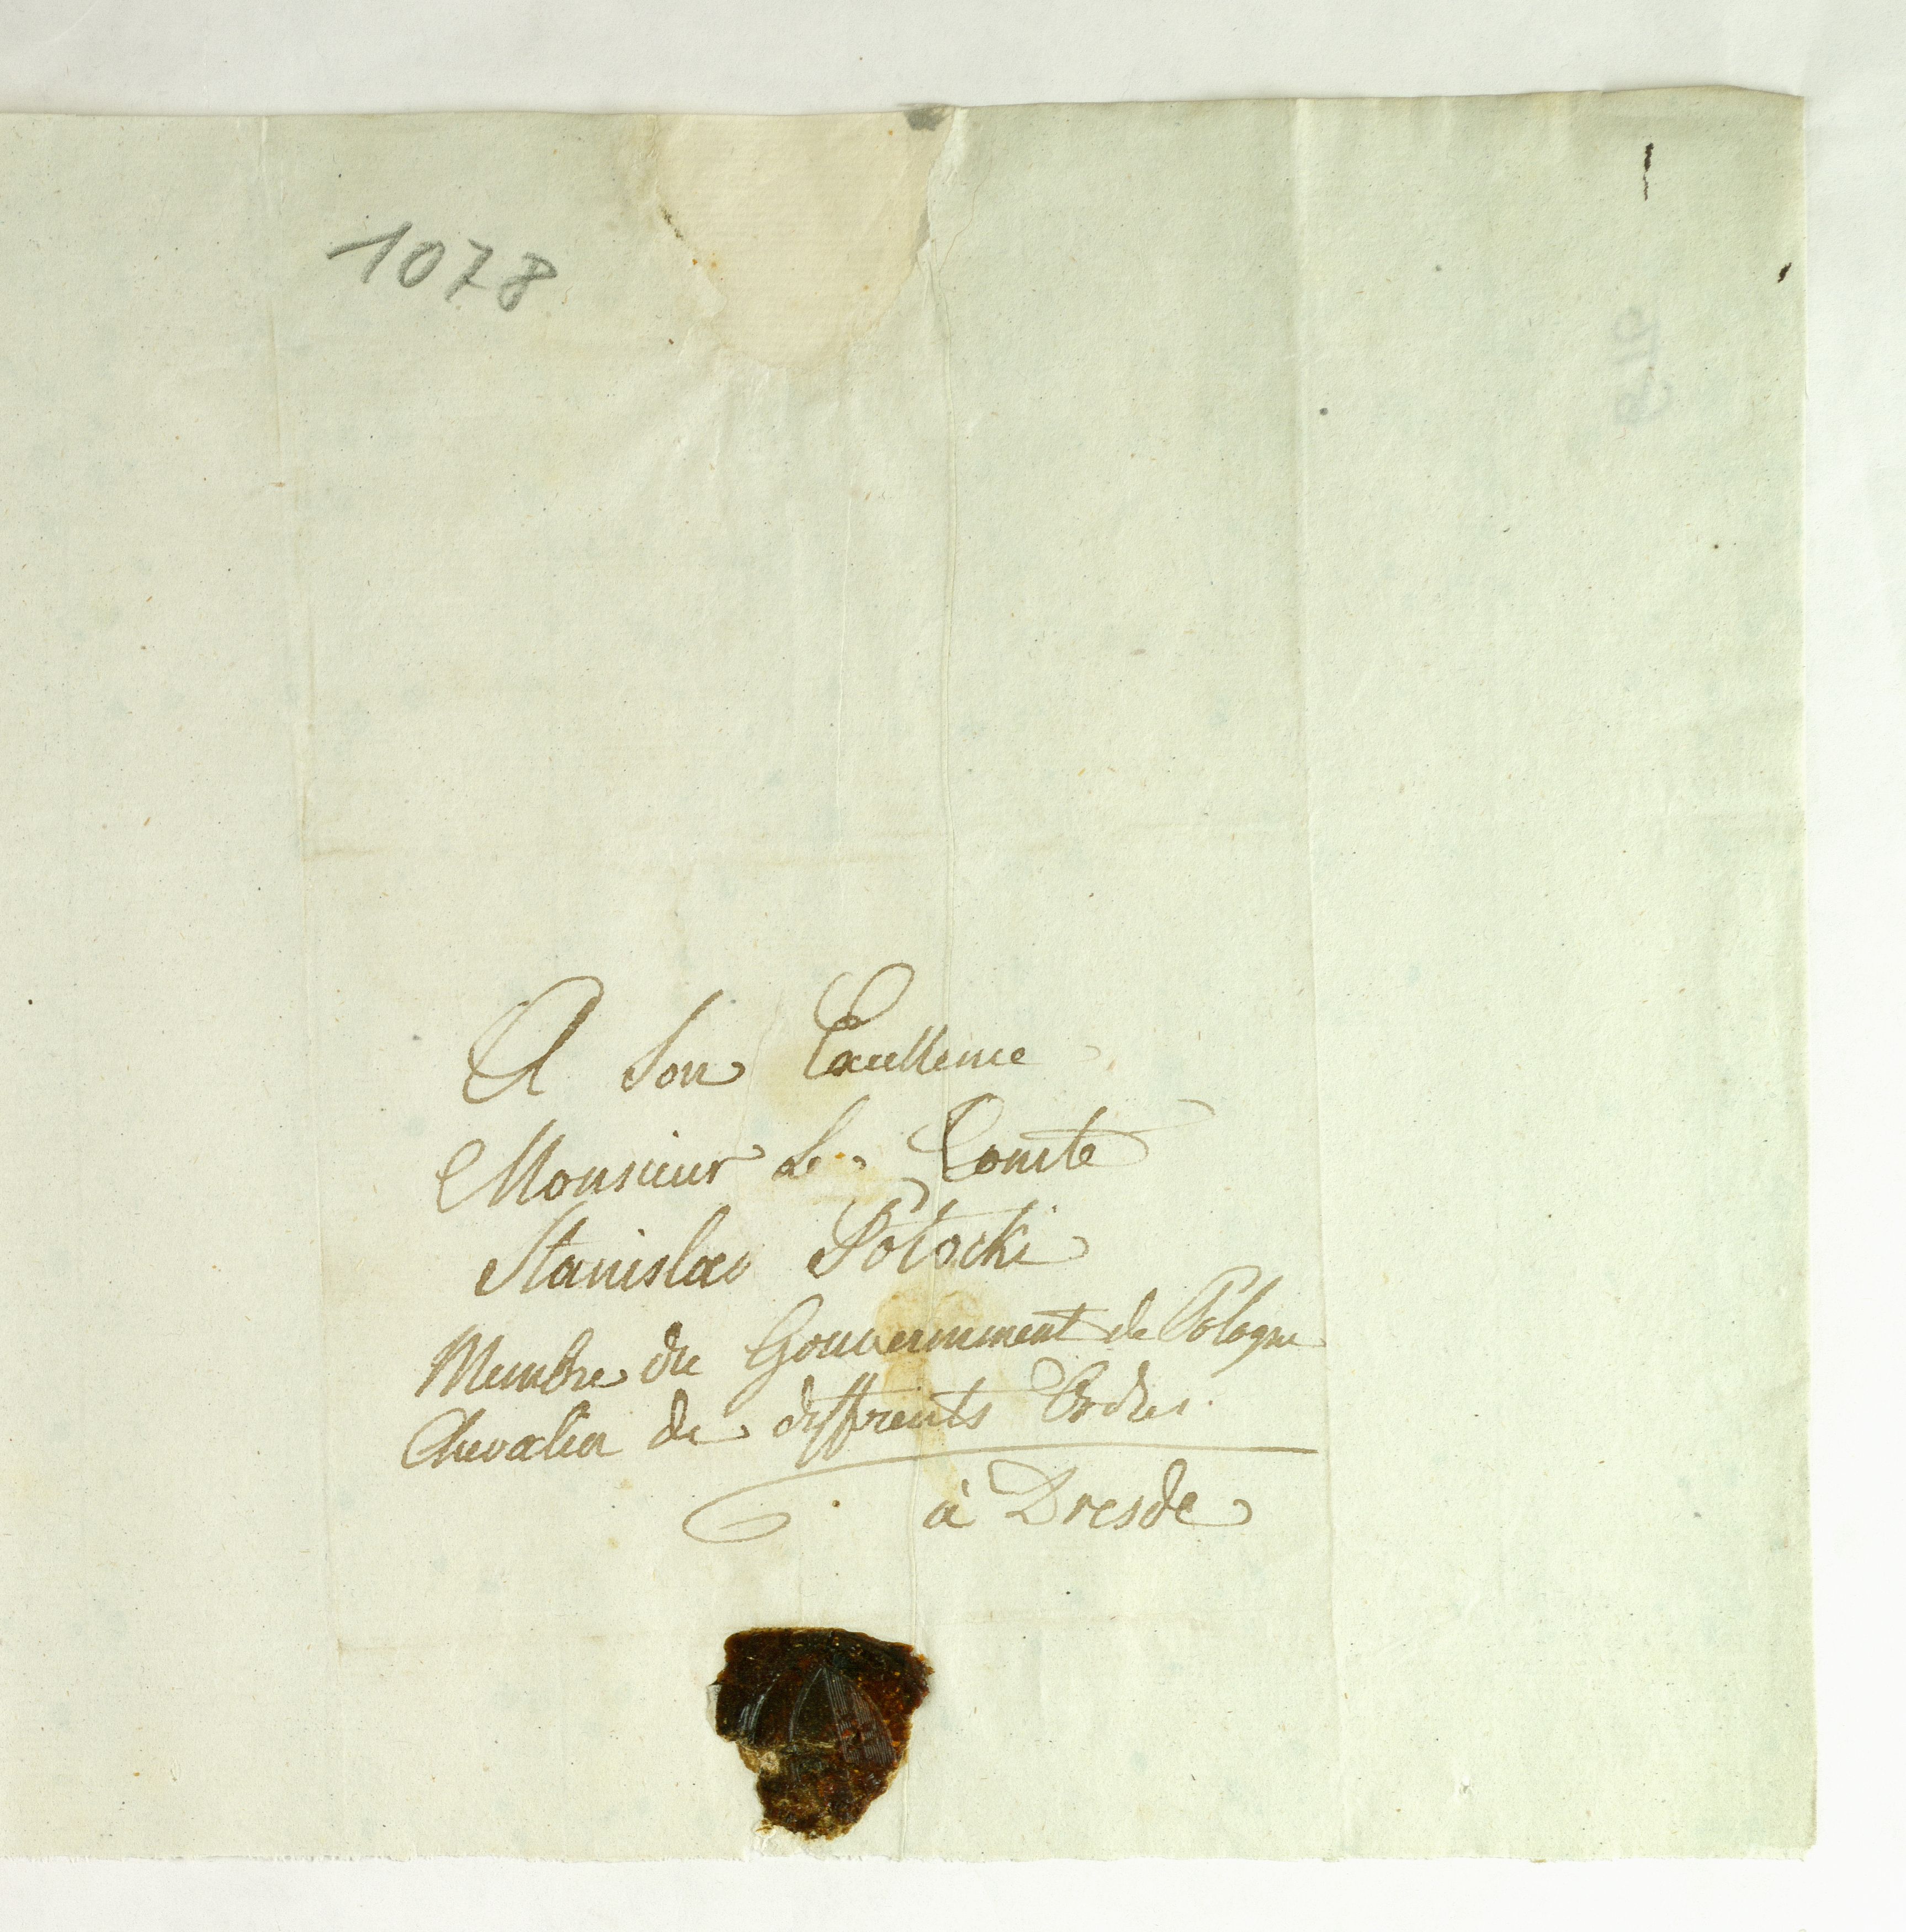 1078
A Son Excellence
Monsieur le Comte
Stanislas Potocki
Membre du Gouvernement de Pologne
Chevalier de diffrents Ordres.
à Dresde